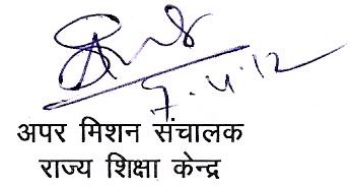 7.4.12
अपर मिशन संचालक
राज्य शिक्षा केन्द्र